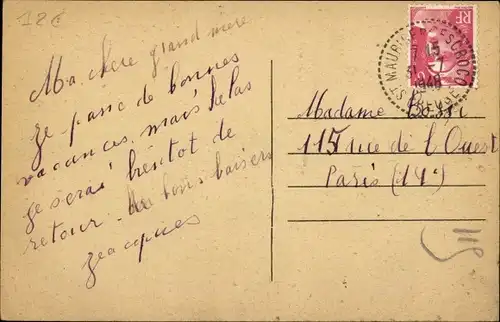 12€
Ma chere grand mere
Je passe de bonnes
vacances mais helas
je serai bientot de
retour de bons baisers
Jeacques
RF
MAURICE
15
1948
CREUSE
Madame
115 rue de l'Ouest
Paris (14e)
115